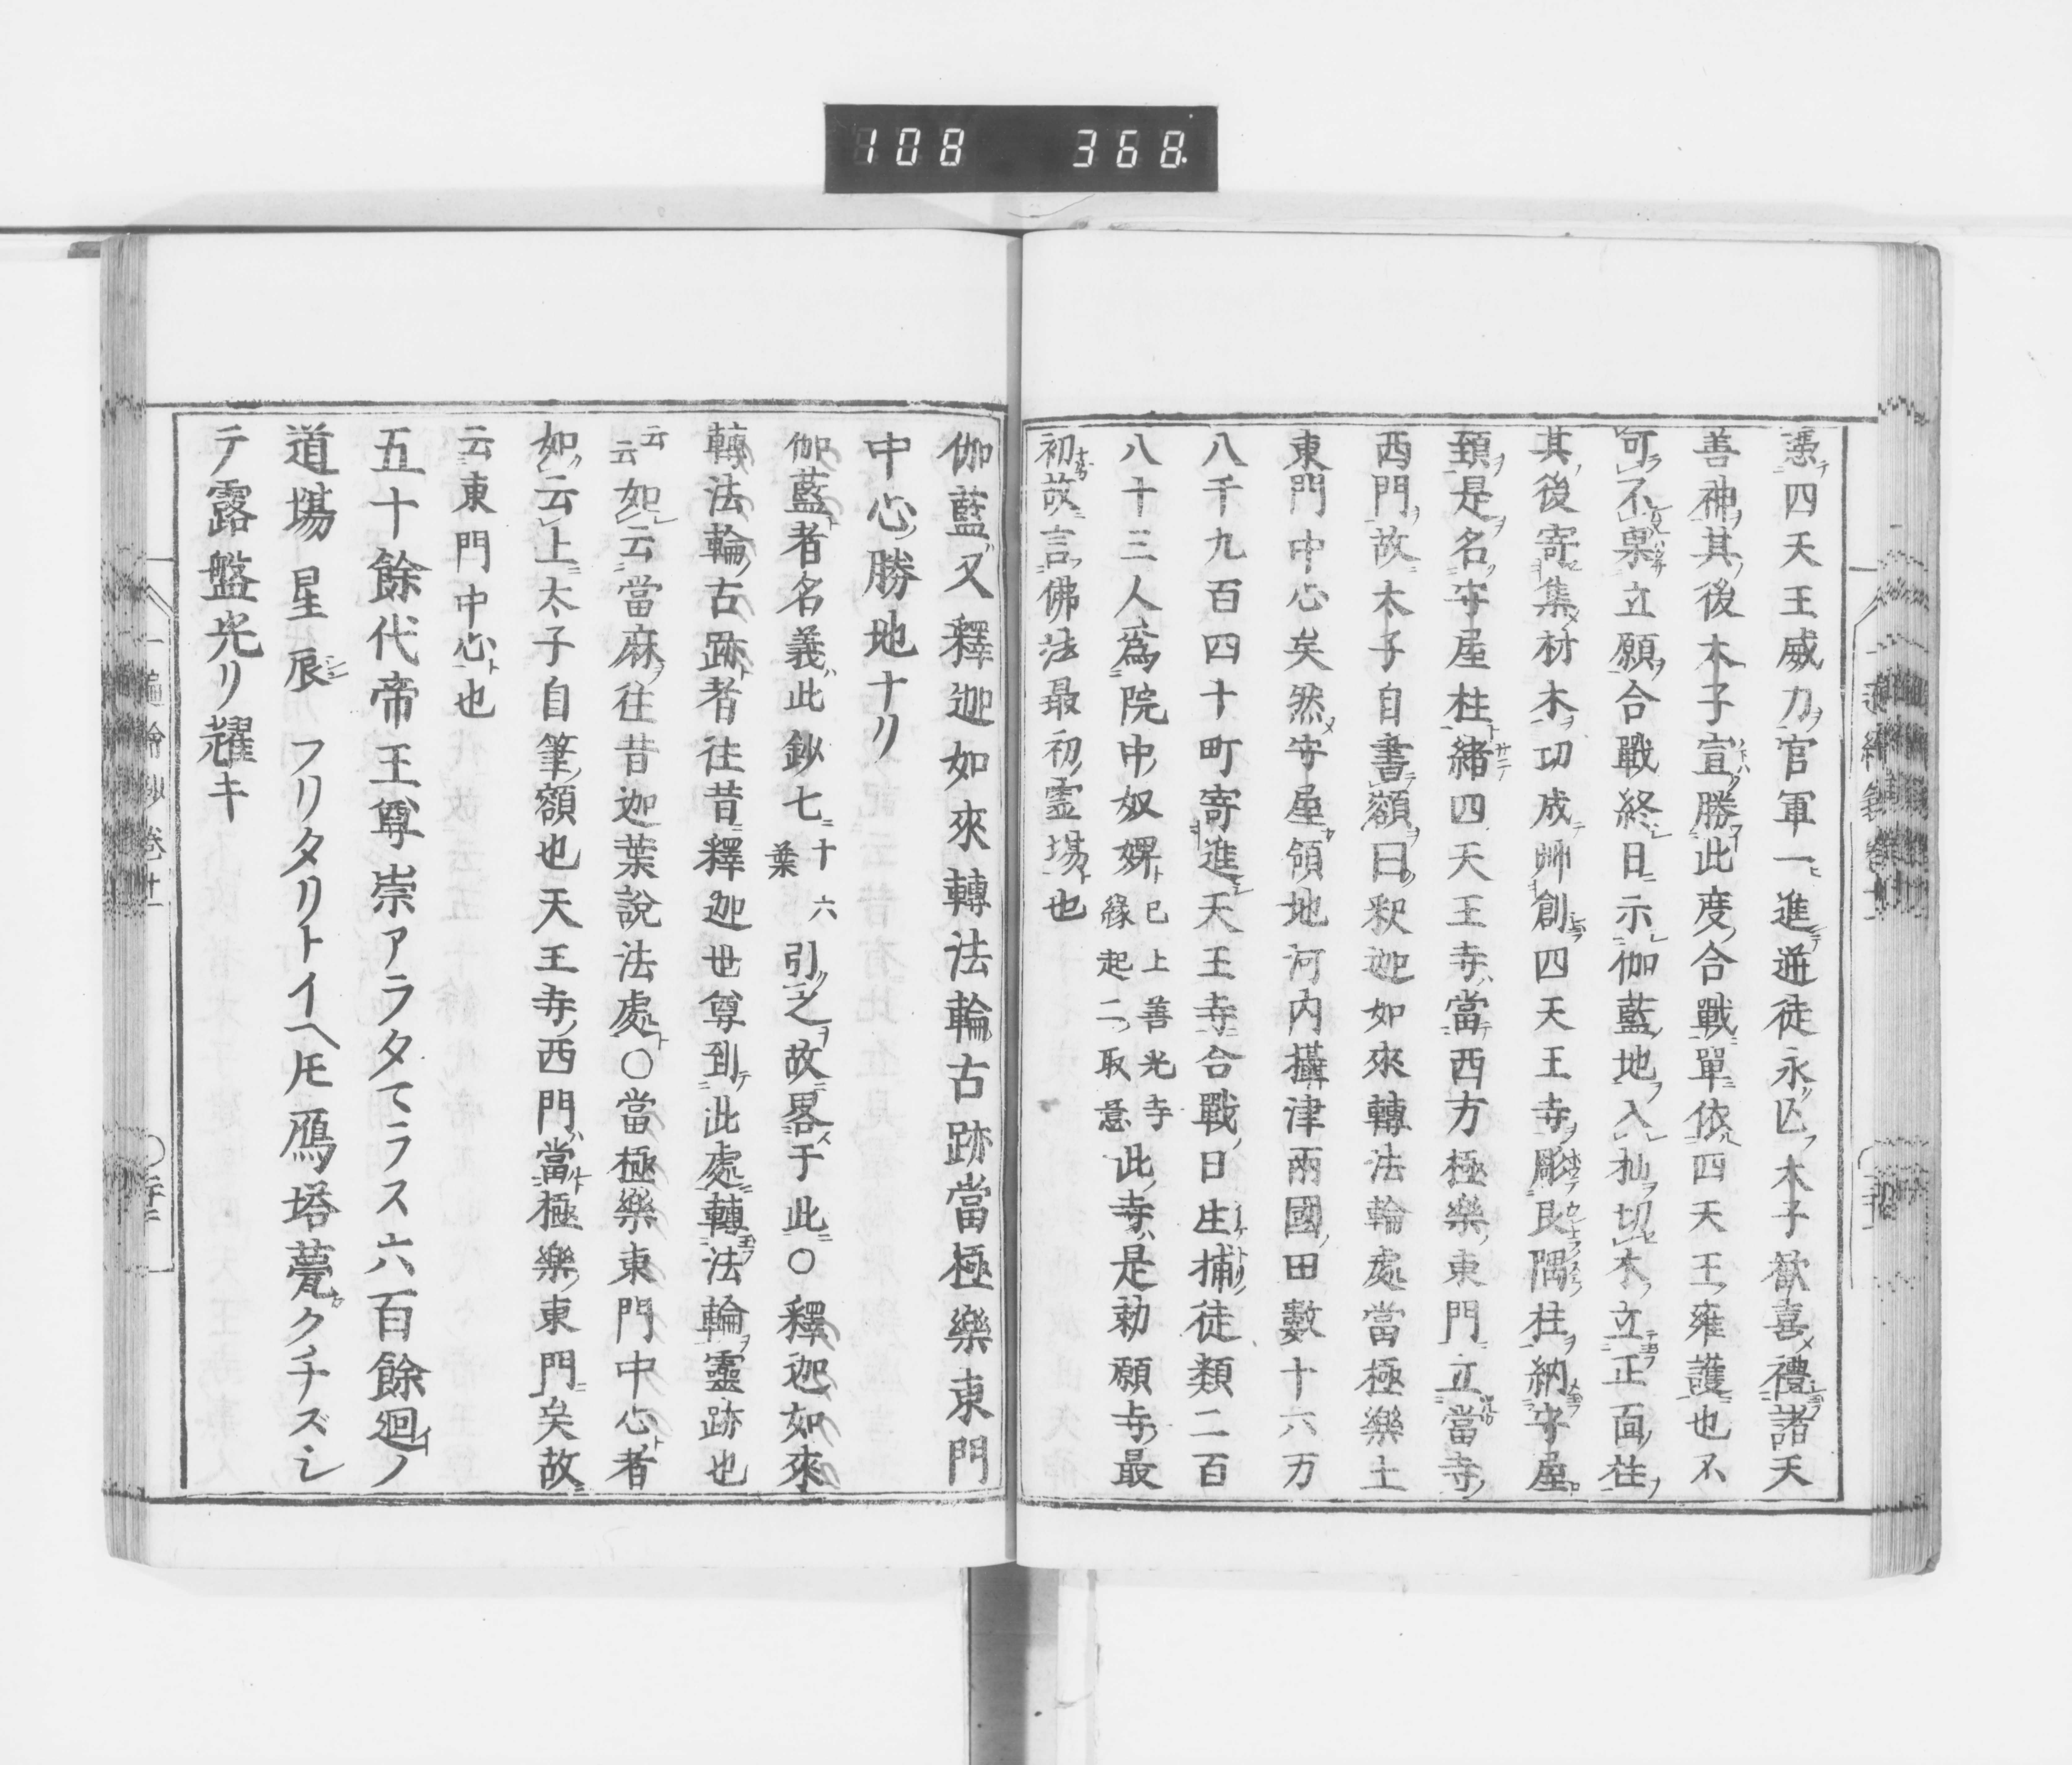 108 368
憑四天王威力官軍一進逆徒永亡太子歡喜禮諸天
善神其後太子宣勝此度合戰單依四天王雍護也不
可不果立願合戰終日示伽藍地入杣切木立正面柱
其後寄集材木功成艸創四天王寺彫艮隅柱納守屋
頚是名守屋柱緒四天王寺當西方極樂東門立當寺
西門故太子自書額曰釈迦如來轉法輪處當極樂土
東門中心矣然守屋領地河内攝津兩國田數十六万
八千九百四十町寄進天王寺合戰日生捕徒類二百
八十三人爲院中奴婢已上善光寺緣起二取意此寺是勅願寺最
初故言佛法最初霊場也
伽藍又釋迦如來轉法輪古跡當極樂東門
中心勝地ナリ
伽藍者名義此鈔七十六葉引之故畧于此○釋迦如來
轉法輪古跡者往昔釋迦世尊到此處轉法輪靈跡也
云云如云當麻往昔迦葉說法處○當極樂東門中心者
如云上太子自筆額也天王寺西門當極樂東門矣故
云東門中心也
五十餘代帝王尊崇アラタテラス六百餘廻ノ
道場星辰フリタリトイヘ𪜈鴈塔甍クチズシ
テ露盤光リ耀キ